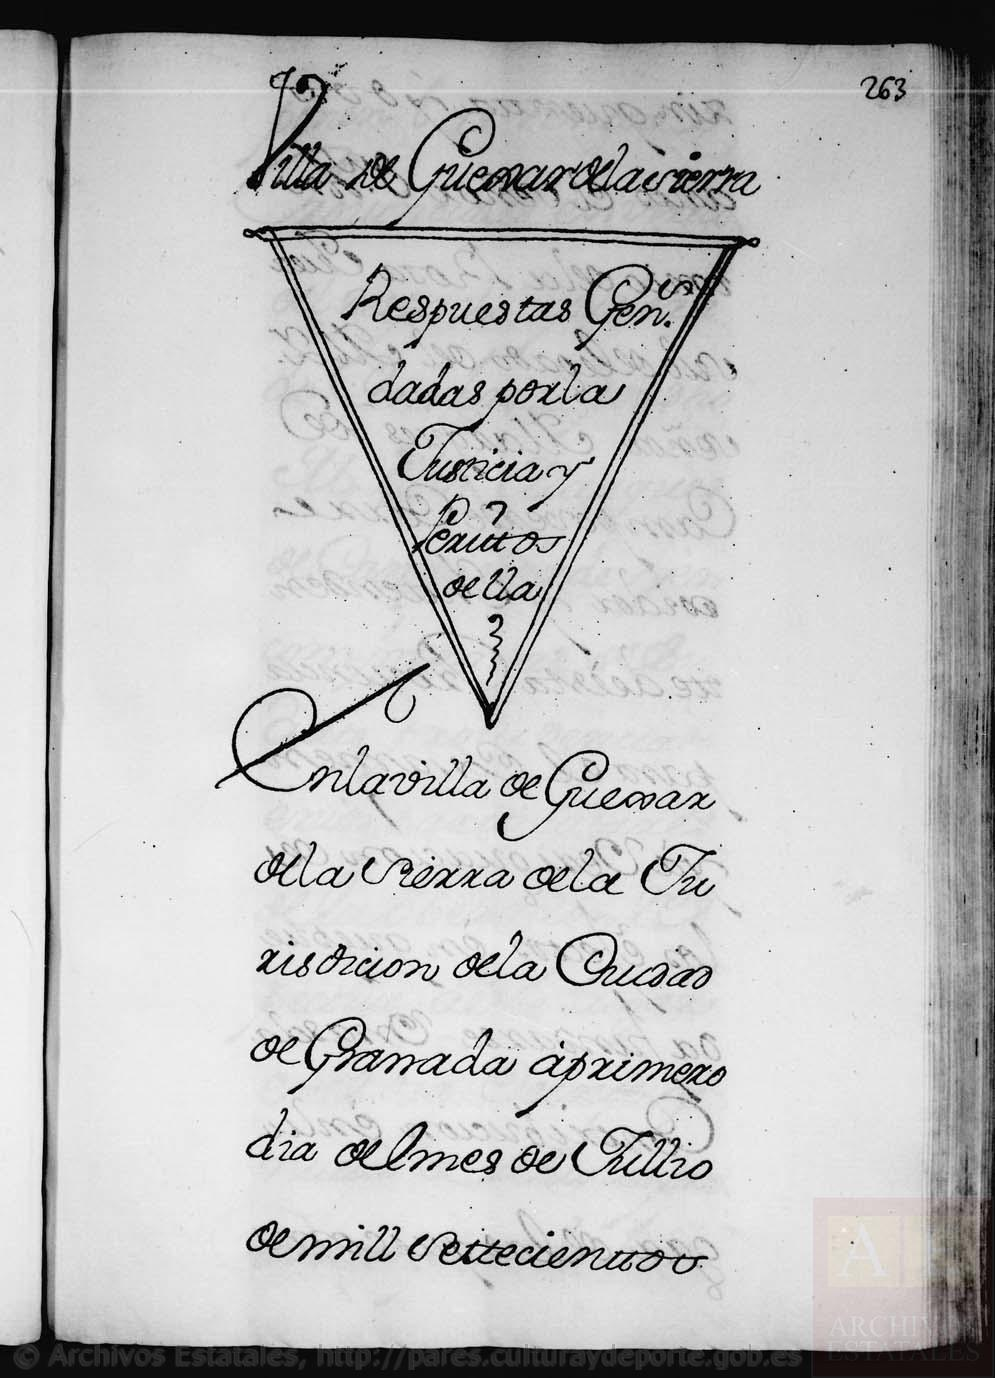 263
Villa de Guexar de la sierra
Respuestas Gen.s
dadas por la
Justicia y
Perittos
de ella
En la villa de Guexar
de la Sierra de la Ju
risdicion de la Ciudad
de Granada á primero
dia del mes de Jullio
de mill Settecienttos
ARCHIVOS
ESTATALES
© Archivos Estatales, http://pares.culturaydeporte.gob.es